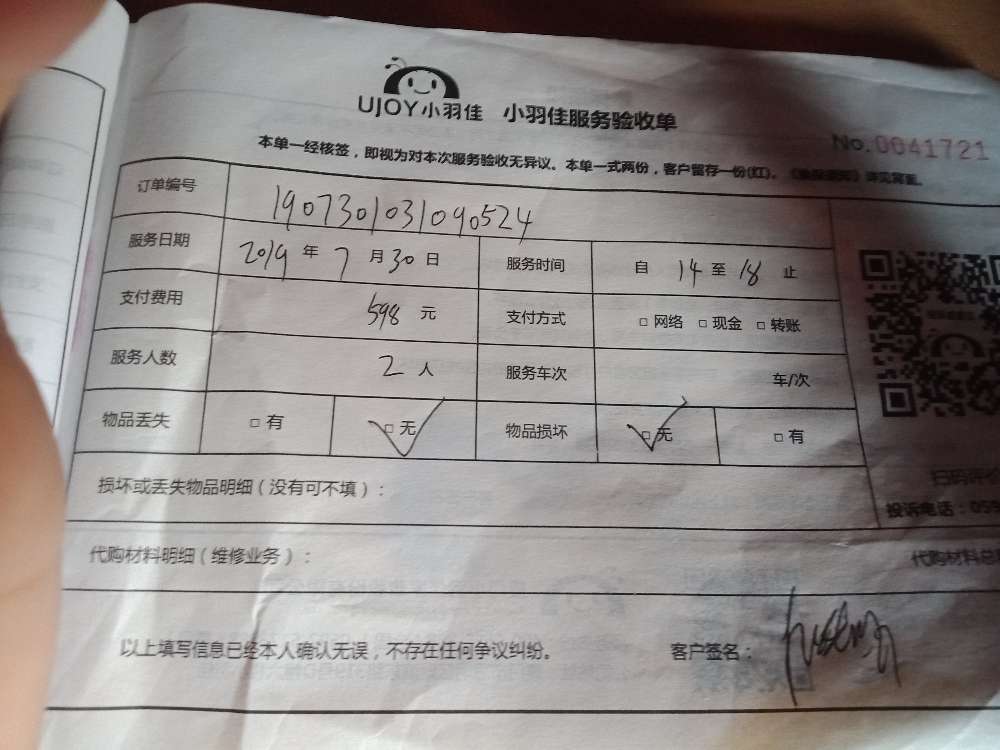 UJOY小羽佳 小羽佳服务验收单
No.0041721
本单一经核签，即视为对本次服务验收无异议。本单一式两份，客户留存一份(红)。
订单编号 1907301031090524
服务日期 2019年7月30日 服务时间 自14至18止
支付费用 598元 支付方式 □网络 □现金 □转账
服务人数 2人 服务车次 车/次
物品丢失 □有 □无 物品损坏 □无 □有
损坏或丢失物品明细（没有可不填）：
扫码评价
投诉电话：059
代购材料明细（维修业务）： 代购材料总
以上填写信息已经本人确认无误，不存在任何争议纠纷。 客户签名：